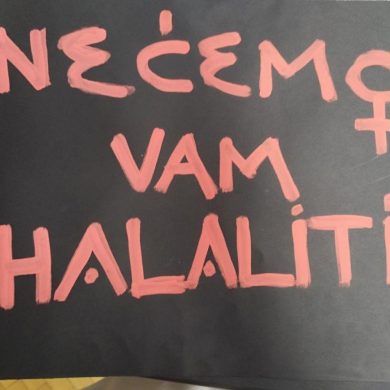 NEĆEMO
VAM
HALALITI